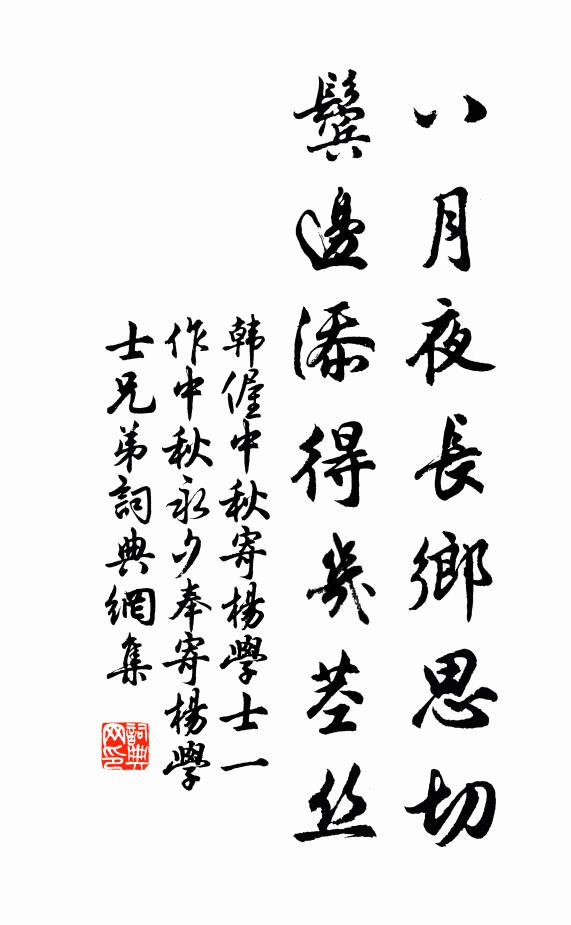 八月夜長鄉思切
鬢邊添得幾莖丝
韩偓中秋寄楊學士一
作中秋永夕奉寄楊學
士兄弟詞典網集
詞典
网印